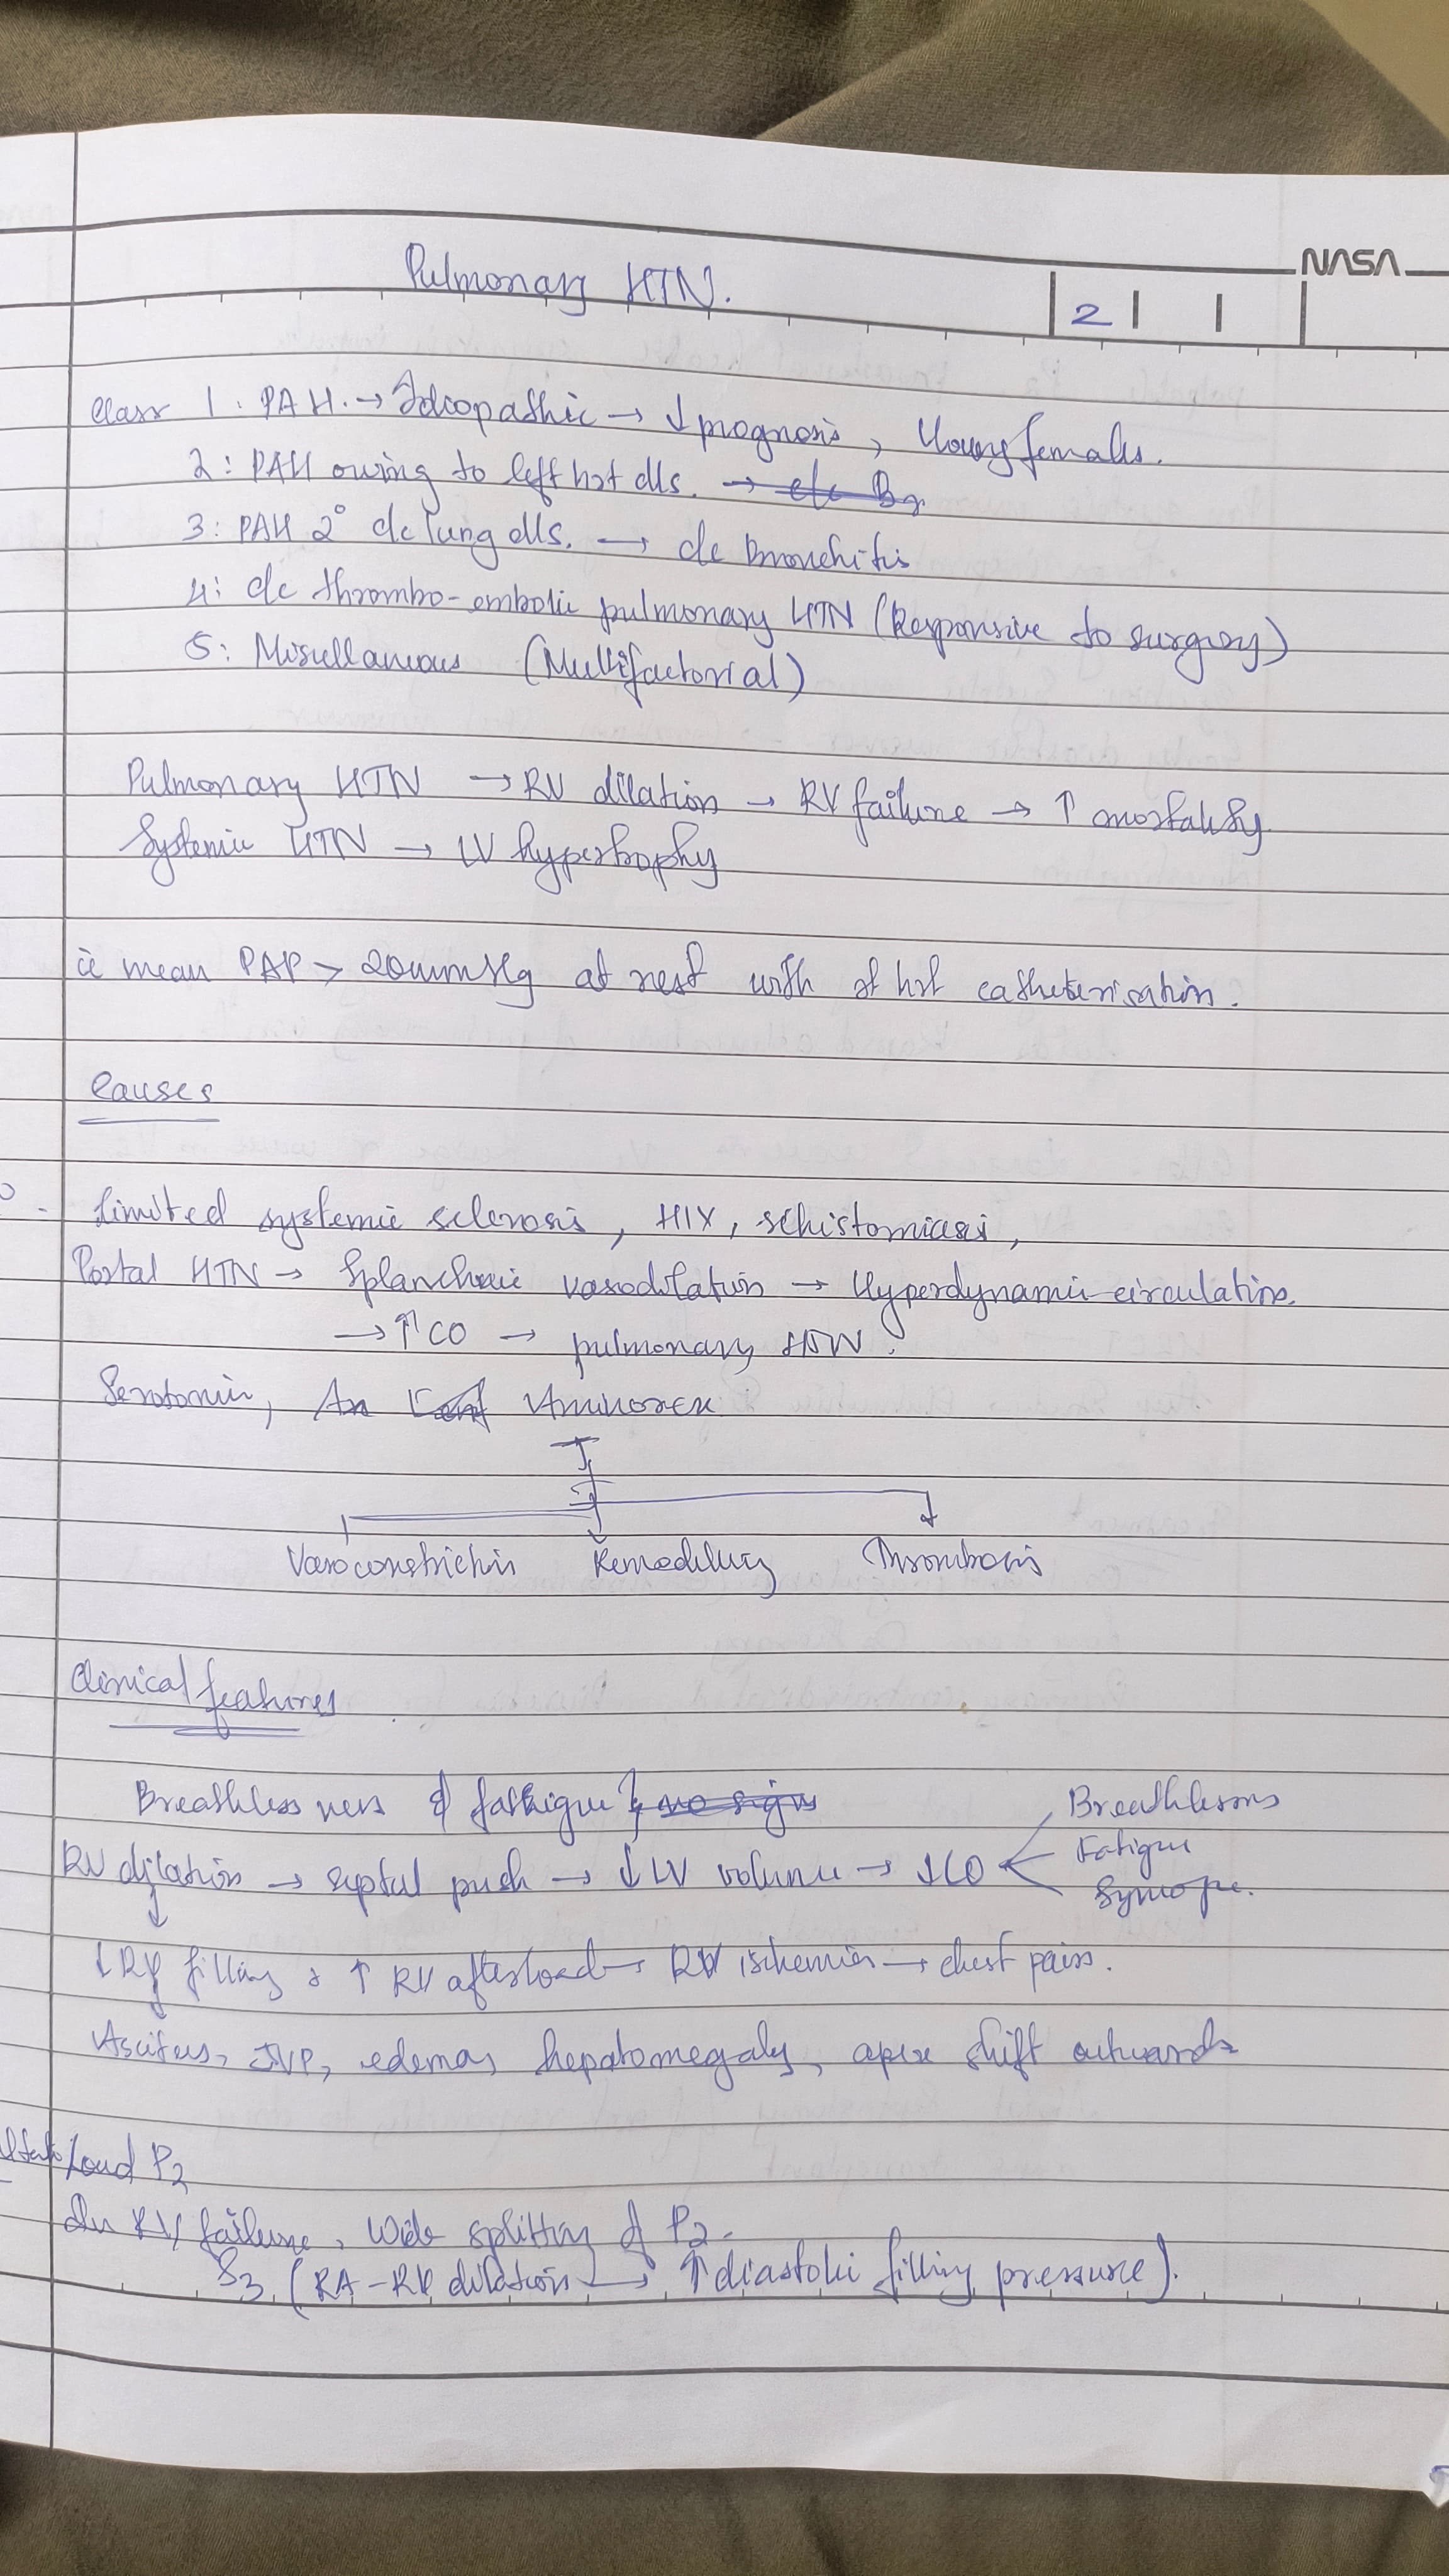 NASA
Pulmonary HTN.
2
Class 1. PAH. → Idiopathic → ↓ prognosis, Young females.
2: PAH owing to left hrt dls. →
3: PAH 2° dc lung dls. → dc Bronchitis
4: dc thrombo-embolic pulmonary HTN (Responsive to surgery)
5: Miscellaneous (Multifactorial)
Pulmonary HTN → RV dilation → RV failure → ↑ mortality
Systemic HTN → LV hypertrophy
mean PAP > 20mmHg at rest with hrt catheterisation.
Causes
Limited systemic sclerosis, HIV, schistomiasi,
Portal HTN → Splanchnic vasodilation → Hyperdynamic circulation.
→ ↑ CO → pulmonary HTN.
Serotonin, Aminorex
Vasoconstriction Remodeling Thrombosis
Clinical features
Breathlessness & fathigue no signs
RV dilation → septal push → ↓ LV volume → ↓ CO Breathlessness
Fatigue
Syncope.
↓ RV filling & ↑ RV afterload → RV ischemia → chest pain.
Ascites, JVP, edema, hepatomegaly, apex shift outwards
Loud P2
In RV failure, Wide splitting of P2.
S3 (RA-RV dilation → ↑ diastolic filling pressure).